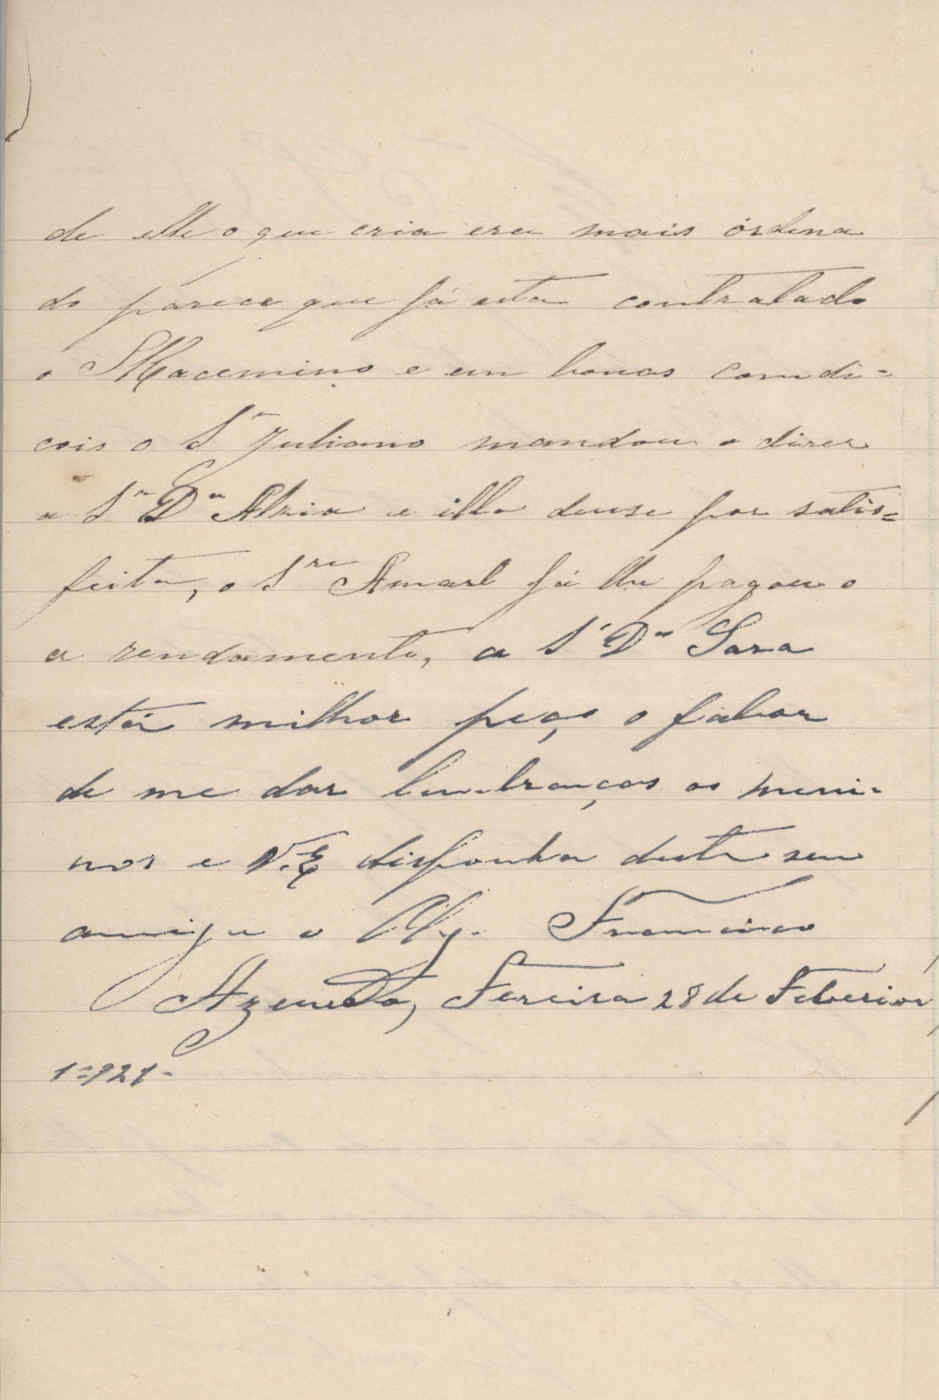 de elle o que cria era mais órdena
do parece que já esta contratado
o Macemino e em bouas comdi=
cois o Sr Juliano mandou o dizer
a Sra Da Alzia e illa deuse por satis=
feita, o Sre Amarl já lhe pagou o
a rendamento, a Sr Da Sara
está milhor peço o fabor
de me dar lembranças os meni-
nos e V.E disponha deste seu
amigu e Obg. Francisco
Azevedo, Fereira 28 de Feberior
1=921-